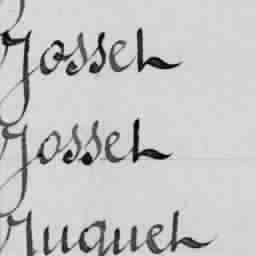 Josset
Josset
Juquel